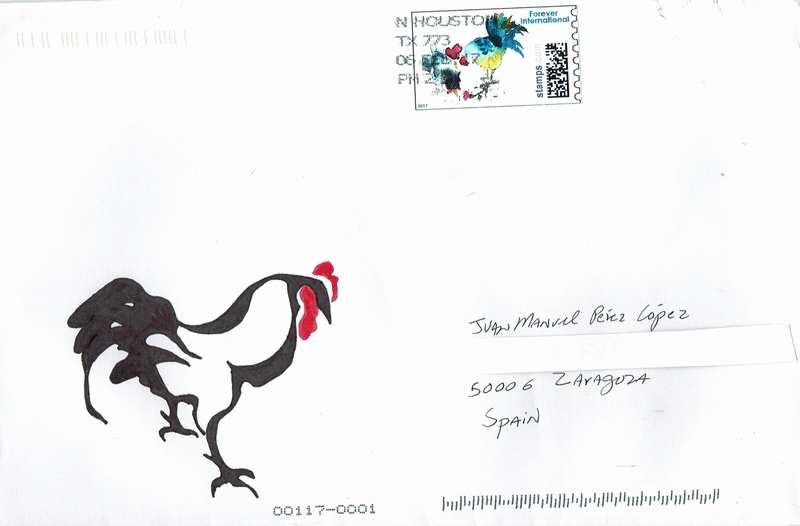 N HOUSTON
TX 773
06
PM
Forever
International
stamps.com
2017
Juan Manuel Pérez López
50006 Zaragoza
Spain
00117-0001